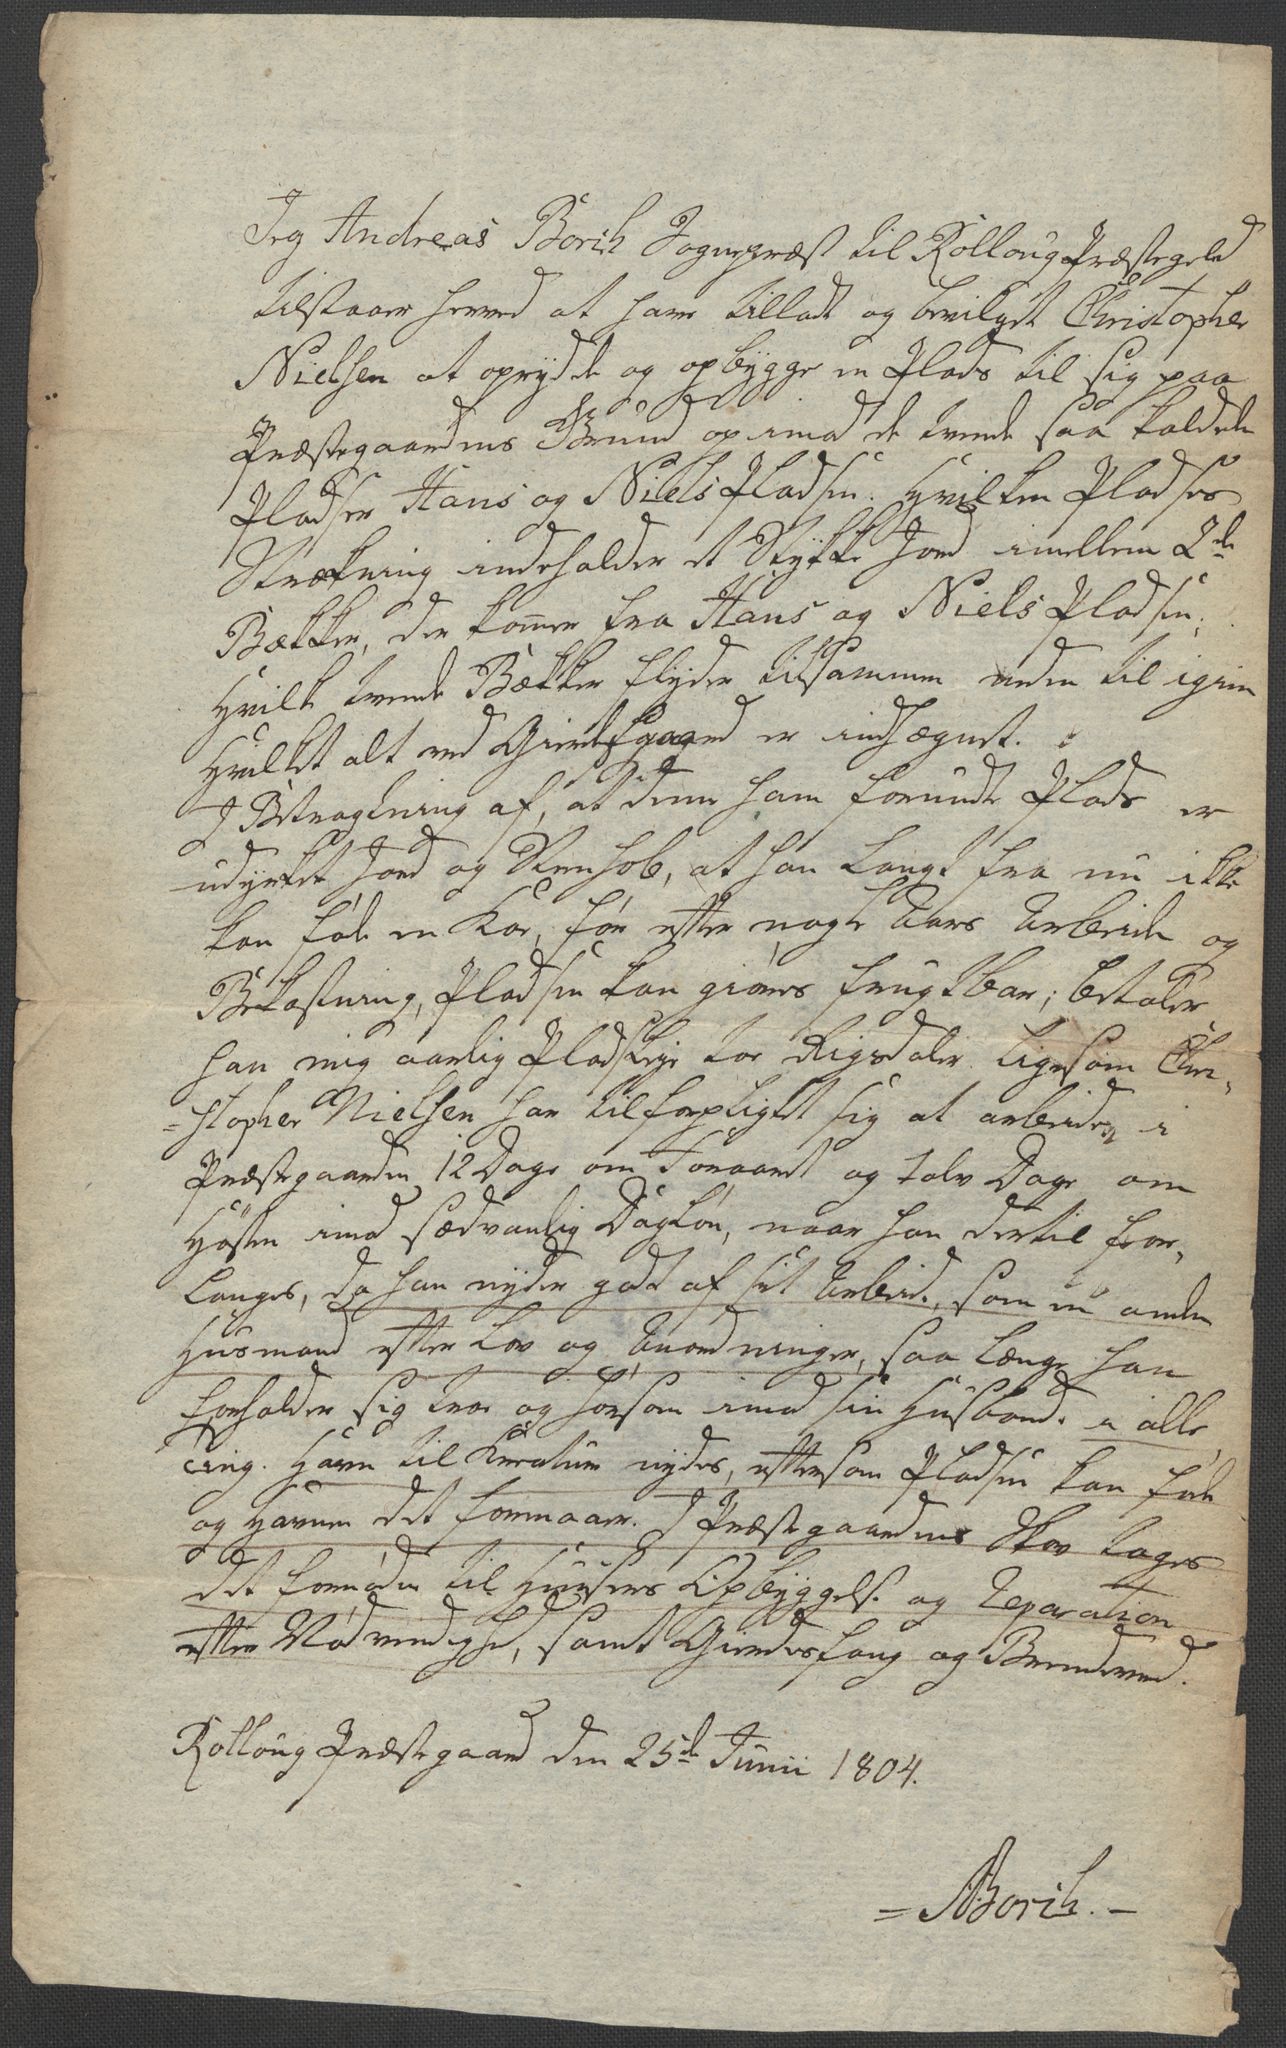 Jeg Andreas Borch Sognepræst til Rolloug Præstegeld
tilstaaer herved at have tilladt og bevilget Christopher
Nielsen at oprydde og opbygge en Plads til sig paa
Præstegaardens Grund op imod de tvende saa kaldede
Pladser Hans og Niels Pladsen. Hvilken Pladses
Strækning indeholder et Stykke Jord imellem 2de
Bækker, der kom̅er fra Hans og Niels Pladsen;
Hvilke tvende Bækker flyder tilsammen neden til igien
Hvilket alt ved Gierdesgaard er indhægnet.
I Betragtning af, at denne ham forundte Plads er
udyrket Jord og Steenhob, at han langt fra nu ikke
kan føde en Koe, før efter nogle Aars Arbeide og
Bekostning, Pladsen kan giøres frugtbar; betaler
han mig aarlig Pladsleje toe Rigsdaler ligesom Chri-
=stopher Nielsen har tilforpligtet sig at arbeide i
Præstegaarden 12 Dage om Foraaret og tolv Dage om
Høsten imod sædvanlig Dagløn, naar han dertil for-
langes, da han nyder godt af sit Arbeid, som en anden
Husmand efter Lov og Anordninger, saa længe han
forholder sig troe og hørsom imod sin Husbond i alle
ting. Havn til Kreature nydes, eftersom Pladsen kan føde
og Havnen det formaaer. I Præstegaardens Skov tages
det fornødne til Husers Opbyggelse og Reparation
efter Nødvendighed, samt Gierdesfang og Brendeved.
Rolloug Præstegaard den 25de Junii 1804.
= ABorch. -